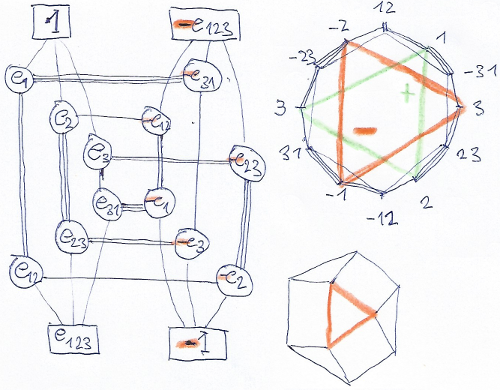 1 -e123
e1 -e31
e2 -e12
e3 -e23
e31 -e1
e23 -e3
e12 -e2
e123 -1
12
-2 1
-23 -31
+
3 3
-
31 23
-1 2
-12